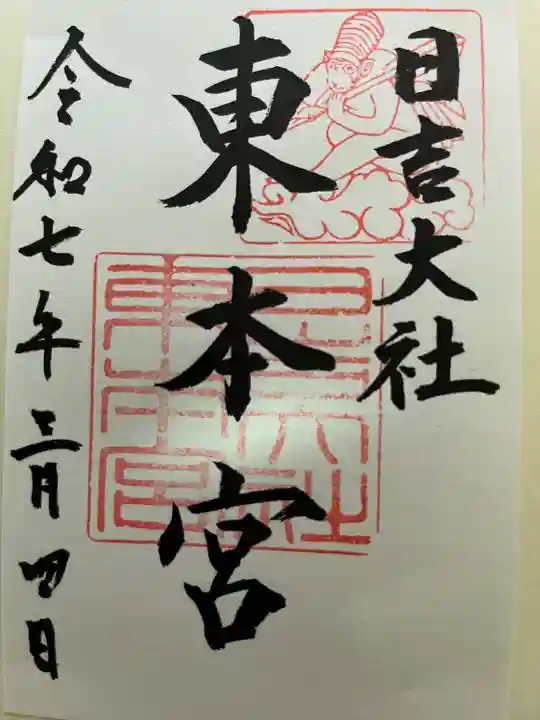 日吉大社
東本宮
令和七年三月四日
日吉大社
東本宮